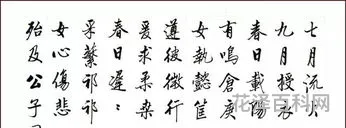 七月流火
九月授衣
春日載陽
有鳴倉庚
女執懿筐
遵彼微行
爰求柔桑
春日遲〻
采蘩祁祁
女心傷悲
殆及公子